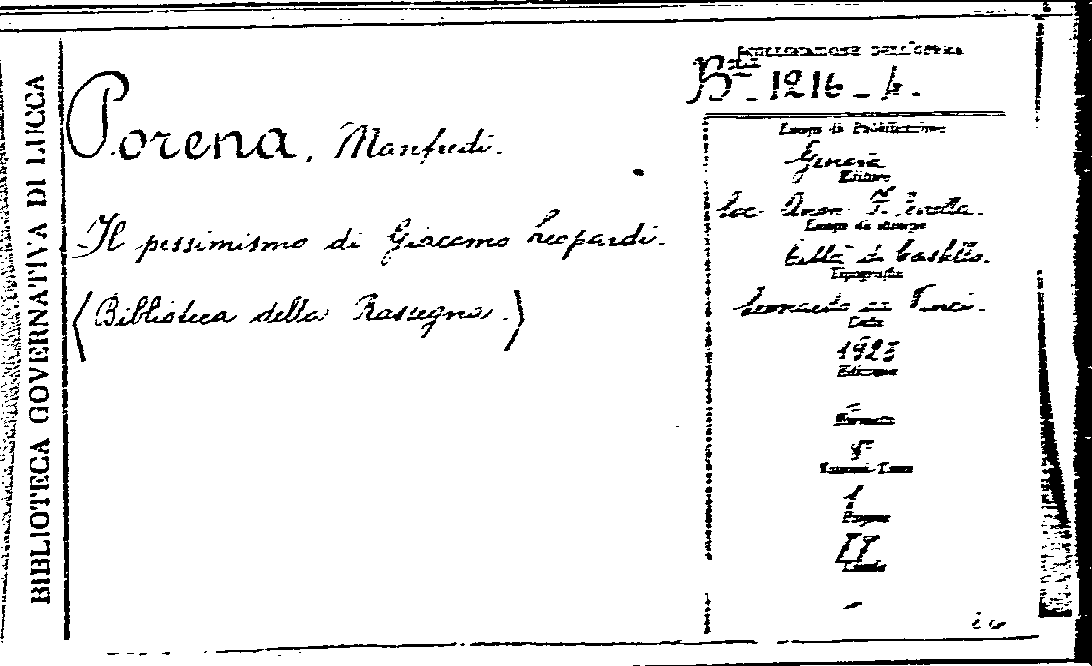 BIBLIOTECA GOVERNATIVA DI LUCCA
Porena, Manfredi.
Il pessimismo di Giacomo Leopardi.
(Biblioteca della Rassegna.)
COLLOCAZIONE DELL'OPERA
Bta - 1216 - 4.
Luogo di Pubblicazione
Genova
Editore
Soc. Anon. F. Perella.
Luogo di stampa
Città di Castello.
Tipografia
Leonardo da Vinci.
Data
1923
Edizione
-
Formato
8°
Numero Tomi
1
Pagine
Lingua
-